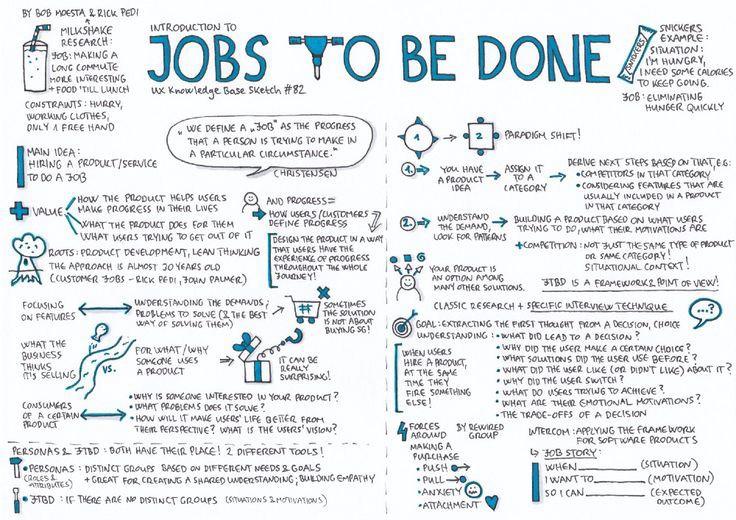 BY BOB MOESTA & RICK PEDI
MILKSHAKE
RESEARCH:
JOB: MAKING A
LONG COMMUTE
MORE INTERESTING
+ FOOD 'TILL LUNCH
CONSTRAINTS: HURRY,
WORKING CLOTHES,
ONLY 1 FREE HAND
INTRODUCTION TO
JOBS TO BE DONE
UX Knowledge Base Sketch #82
SNICKERS
SNICKERS
EXAMPLE:
SITUATION:
I'M HUNGRY,
I NEED SOME CALORIES
TO KEEP GOING.
JOB: ELIMINATING
HUNGER QUICKLY
"WE DEFINE A „JOB" AS THE PROGRESS
THAT A PERSON IS TRYING TO MAKE IN
A PARTICULAR CIRCUMSTANCE."
CHRISTENSEN
MAIN IDEA:
HIRING A PRODUCT/SERVICE
TO DO A JOB
VALUE
HOW THE PRODUCT HELPS USERS
MAKE PROGRESS IN THEIR LIVES
WHAT THE PRODUCT DOES FOR THEM
WHAT USERS TRYING TO GET OUT OF IT
AND PROGRESS=
HOW USERS/CUSTOMERS
DEFINE PROGRESS
DESIGN THE PRODUCT IN A WAY
THAT USERS HAVE THE
EXPERIENCE OF PROGRESS
THROUGHOUT THE WHOLE
JOURNEY!
ROOTS: PRODUCT DEVELOPMENT, LEAN THINKING
THE APPROACH IS ALMOST 20 YEARS OLD
(CUSTOMER JOBS - RICK PEDI, JOHN PALMER)
FOCUSING
ON FEATURES
UNDERSTANDING THE DEMANDS;
PROBLEMS TO SOLVE (& THE BEST
WAY OF SOLVING THEM)
#
SOMETIMES
THE SOLUTION
IS NOT ABOUT
BUYING SG!
WHAT THE
BUSINESS
THINKS
IT'S SELLING
VS.
FOR WHAT / WHY
SOMEONE USES
A PRODUCT
?
IT CAN BE
REALLY
SURPRISING!
CONSUMERS
OF A CERTAIN
PRODUCT
• WHY IS SOMEONE INTERESTED IN YOUR PRODUCT?
• WHAT PROBLEMS DOES IT SOLVE?
• HOW WILL IT MAKE USERS' LIFE BETTER FROM
THEIR PERSPECTIVE? WHAT IS THE USERS' VISION?
PERSONAS & JTBD: BOTH HAVE THEIR PLACE! 2 DIFFERENT TOOLS!
PERSONAS: DISTINCT GROUPS BASED ON DIFFERENT NEEDS & GOALS
(ROLES & ATTRIBUTES)
+ GREAT FOR CREATING A SHARED UNDERSTANDING; BUILDING EMPATHY
JTBD: IF THERE ARE NO DISTINCT GROUPS (SITUATIONS & MOTIVATIONS)
1
2
PARADIGM SHIFT!
1.
YOU HAVE
A PRODUCT
IDEA
ASSIGN IT
TO A
CATEGORY
DERIVE NEXT STEPS BASED ON THAT, E.G:
• COMPETITORS IN THAT CATEGORY
• CONSIDERING FEATURES THAT ARE
USUALLY INCLUDED IN A PRODUCT
IN THAT CATEGORY
2.
UNDERSTAND
THE DEMAND,
LOOK FOR PATTERNS
BUILDING A PRODUCT BASED ON WHAT USERS
TRYING TO DO, WHAT THEIR MOTIVATIONS ARE
+ COMPETITION: NOT JUST THE SAME TYPE OF PRODUCT
OR SAME CATEGORY!
SITUATIONAL CONTEXT!
YOUR PRODUCT IS
AN OPTION AMONG
MANY OTHER SOLUTIONS.
JTBD IS A FRAMEWORK & POINT OF VIEW!
CLASSIC RESEARCH + SPECIFIC INTERVIEW TECHNIQUE
...?
GOAL: EXTRACTING THE FIRST THOUGHT FROM A DECISION, CHOICE
UNDERSTANDING:
• WHAT DID LEAD TO A DECISION?
• WHY DID THE USER MAKE A CERTAIN CHOICE?
• WHAT SOLUTIONS DID THE USER USE BEFORE?
• WHAT DID THE USER LIKE (OR DIDN'T LIKE) ABOUT IT?
• WHY DID THE USER SWITCH?
• WHAT DO USERS TRYING TO ACHIEVE?
• WHAT ARE THEIR EMOTIONAL MOTIVATIONS?
• THE TRADE-OFFS OF A DECISION
WHEN USERS
HIRE A PRODUCT,
AT THE SAME
TIME THEY
FIRE SOMETHING
ELSE!
4 FORCES
AROUND
MAKING A
PURCHASE
BY REWIRED
GROUP
• PUSH
• PULL
• ANXIETY
• ATTACHMENT
INTERCOM: APPLYING THE FRAMEWORK
FOR SOFTWARE PRODUCTS
JOB STORY:
WHEN (SITUATION)
I WANT TO (MOTIVATION)
SO I CAN (EXPECTED
OUTCOME)